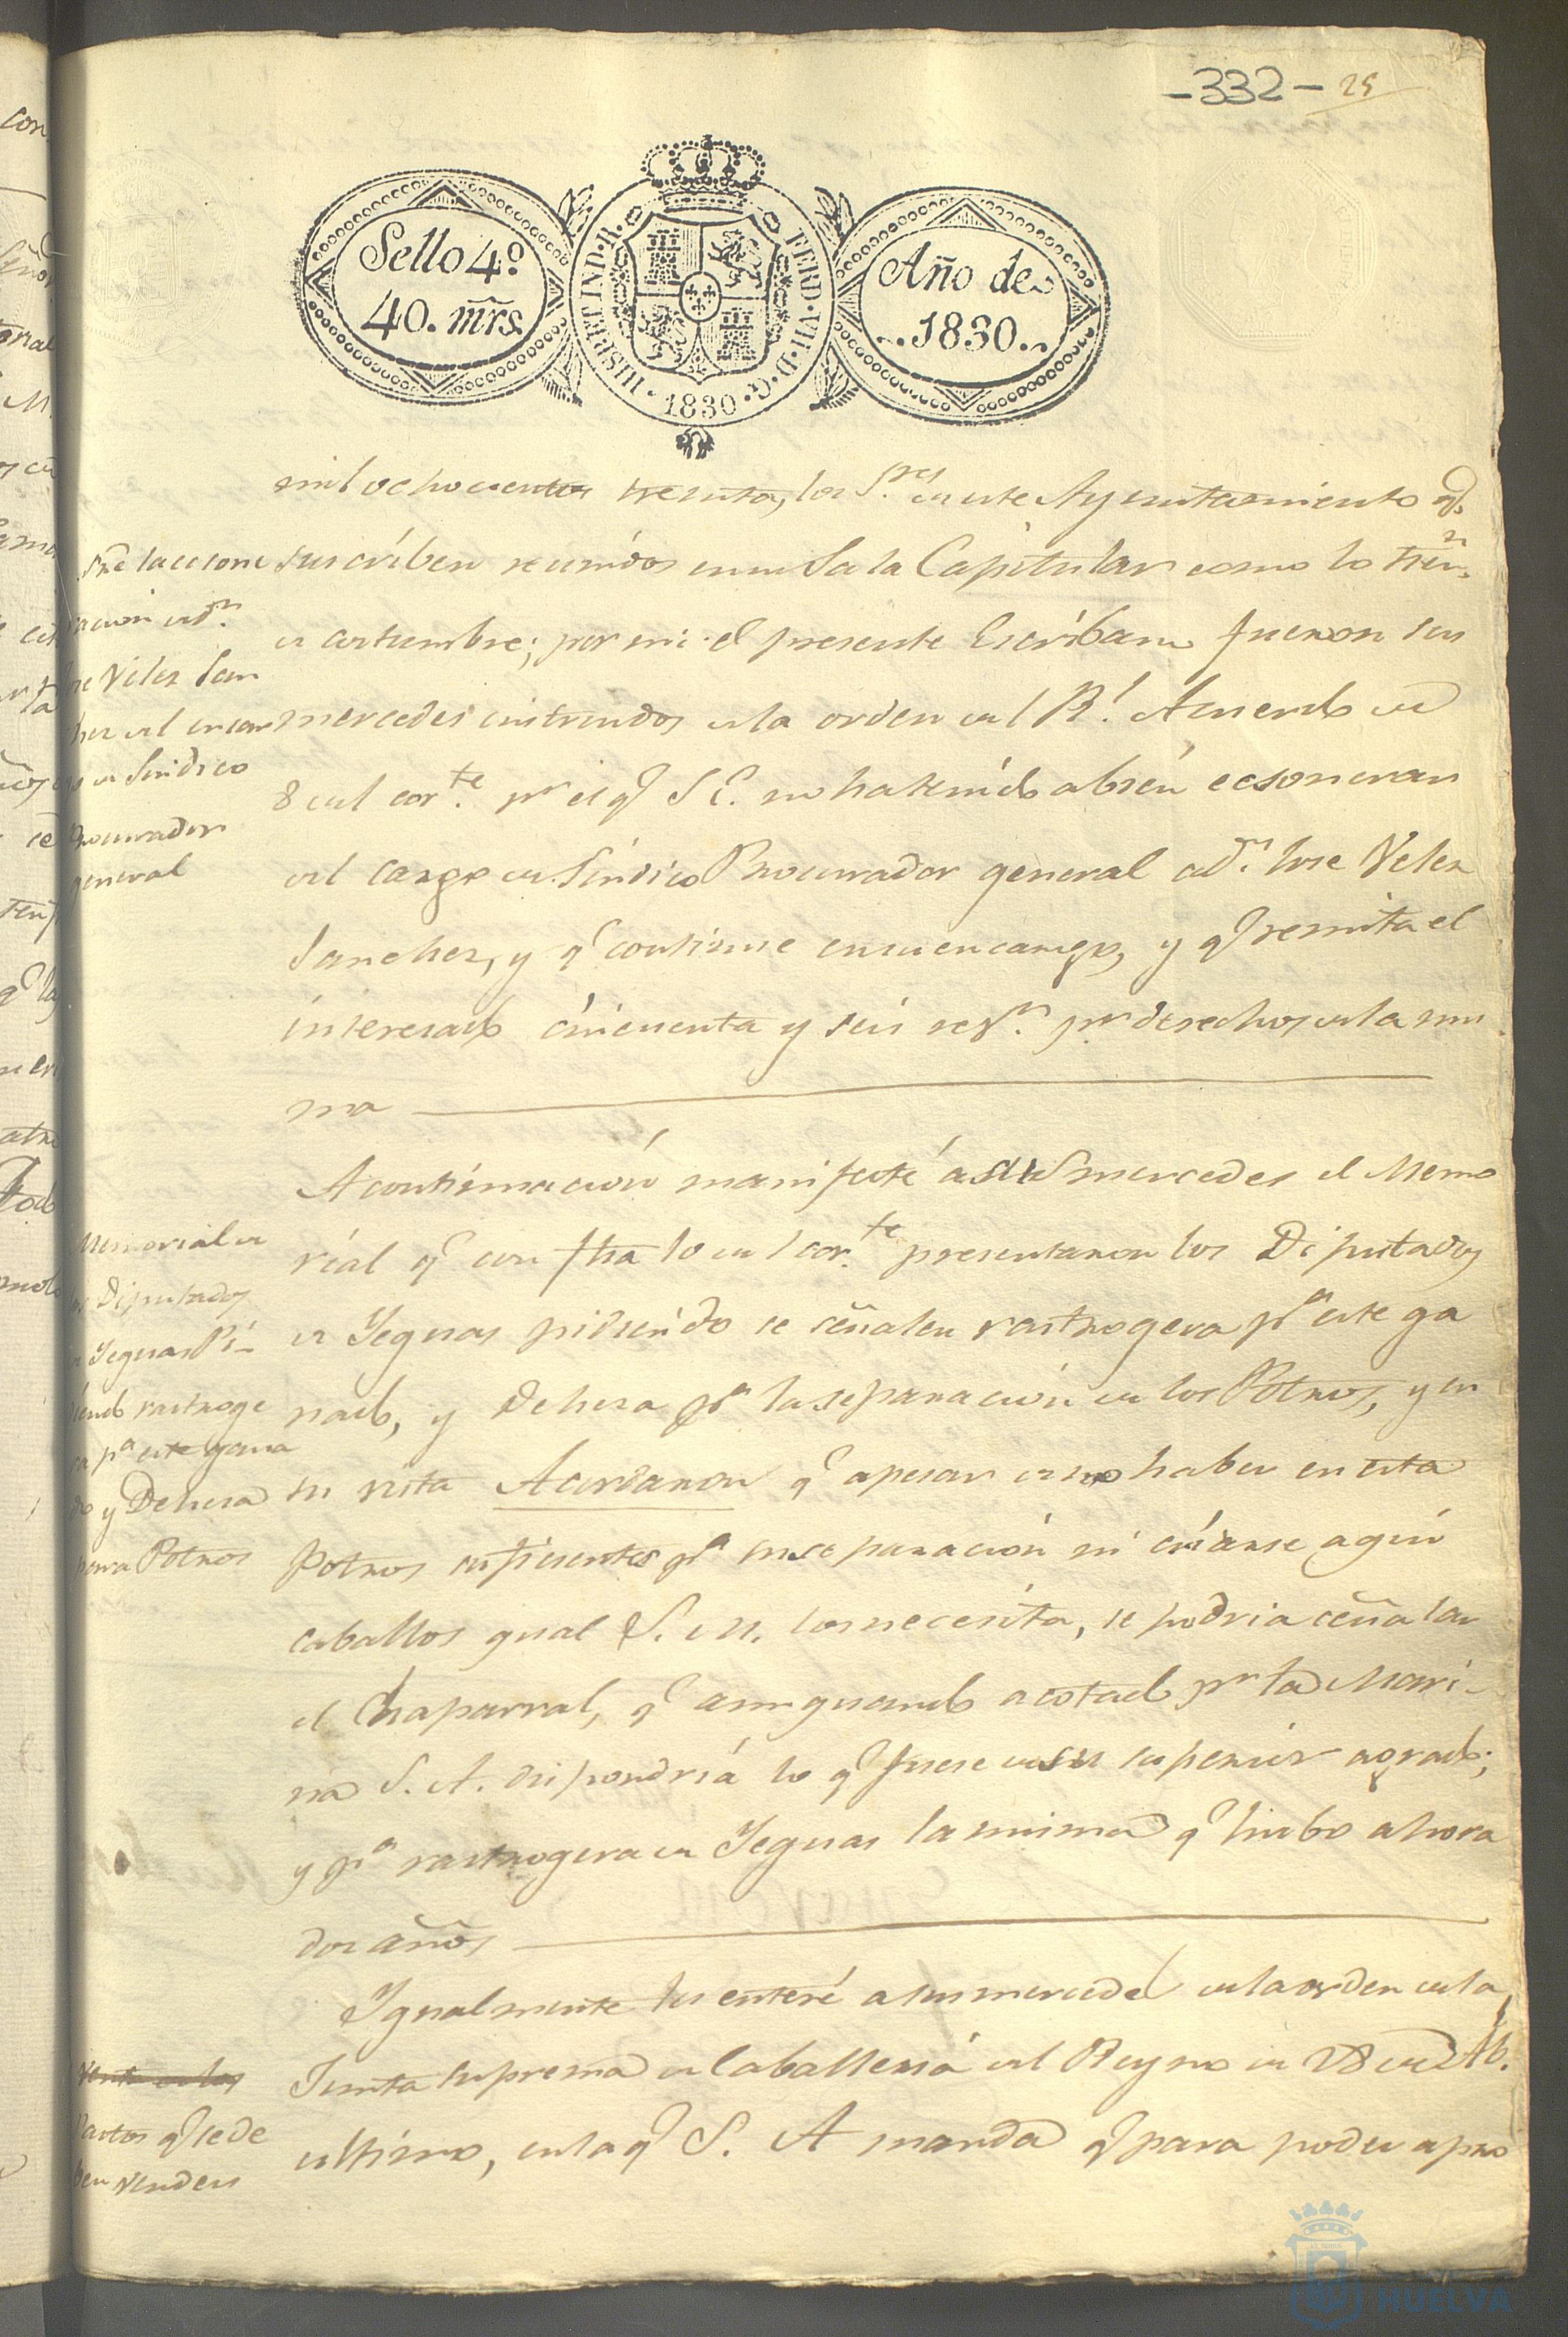 -332- 25
Sello 4º
40. mrs.
HISP. ET IND. R. FERD. VII. D. G. 1830.
Año de
1830.
mil ochocientos treinta, los S.res de este Ayuntamiento q.
suscriben reunidos en su Sala Capitular como lo tien.n
de costumbre; por mi el presente Escribano fueron sus
mercedes instruidos de la orden del R.l Acuerdo de
8 del cor.te p.r el q.e S. E. no ha tenido a bien ecsonerar
del cargo de Sindico Procurador general a d.n Jose Velez
Sanchez, y q.e continue en su encargo, y q.e remita el
interesado cincuenta y seis r.s v.n p.r derechos de la mis
ma
A continuación manifesté a sus mercedes el Memo
rial q.e con fha 10 del cor.te presentaron los Diputados
de Yeguas pidiendo se señalen rastrogera p.a este ga
nado, y Dehesa p.a la separacion de los Potros, y en
su vista Acordaron q.e apesar de no haber en esta
Potros suficientes p.a su separación ni criarse aquí
caballos qual S. M. los necesita, se podria señalar
el Chaparral, q.e aunquando acotado p.r la Mari-
na S. A. dispondría lo q.e fuese de su superior agrado;
y p.a rastrogera de Yeguas la misma q.e hubo ahora
dos años
Igualmente les enteré a sus mercedes de la orden de la
Junta suprema de Caballería del Reyno de 28 de Ab.l
ultimo, en la q.e S. A manda q.e para poder apro
Sre la ecsone
racion de d.n
Jose Velez San
chez del encar
go de Sindico
Procurador
general
Memorial de
los Diputados
de Yeguas Pi-
diendo rastroge
ra p.a este gana
do y Dehesa
para Potros
Venta de los
Pastos q.e se de
ben vender
HUELVA